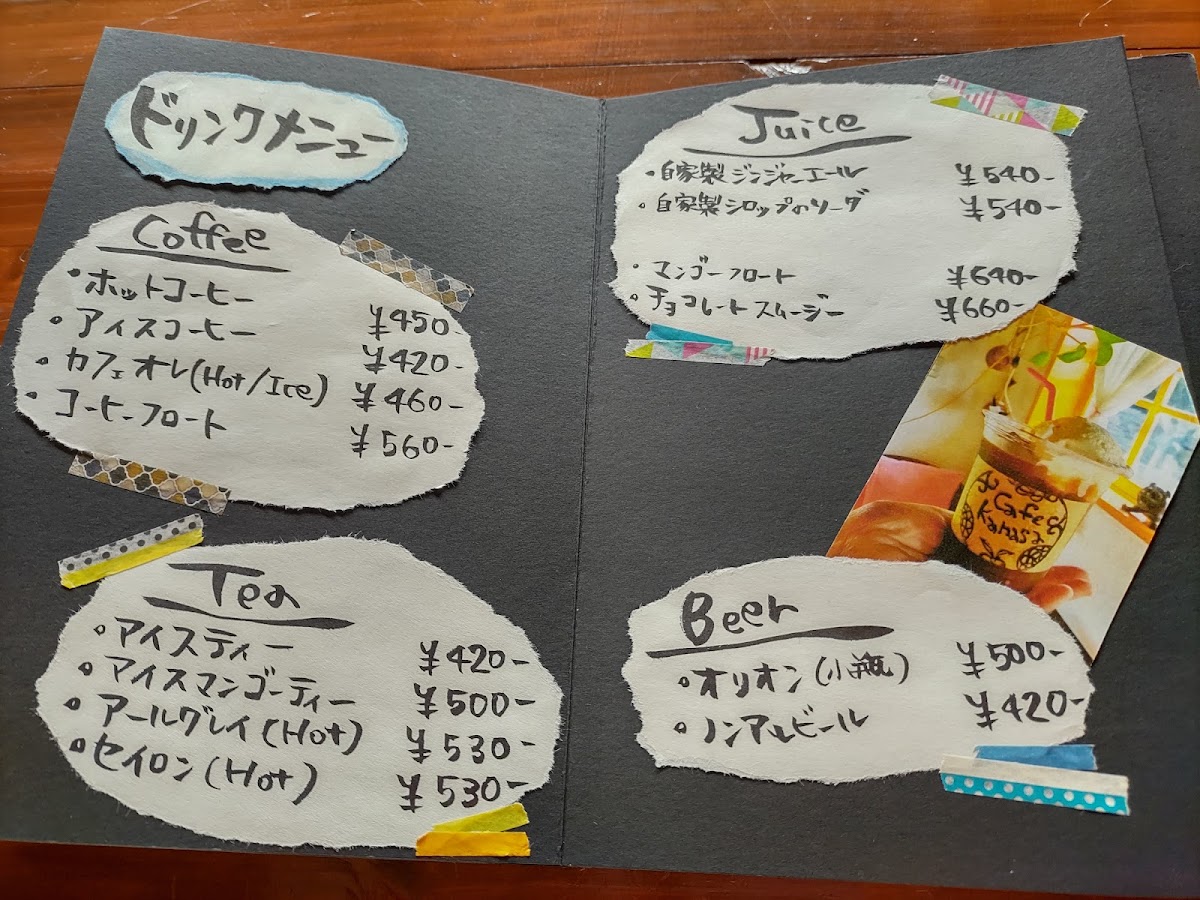 ドリンクメニュー
Coffee
・ホットコーヒー ¥450-
・アイスコーヒー ¥420-
・カフェオレ(Hot/Ice) ¥460-
・コーヒーフロート ¥560-
Tea
・アイスティー ¥420-
・アイスマンゴーティー ¥500-
・アールグレイ(Hot) ¥530-
・セイロン(Hot) ¥530-
Juice
・自家製ジンジャーエール ¥540-
・自家製シロップのソーダ ¥540-
・マンゴーフロート ¥640-
・チョコレートスムージー ¥660-
Cafe
Kanasa
Beer
・オリオン(小瓶) ¥500-
・ノンアルビール ¥420-